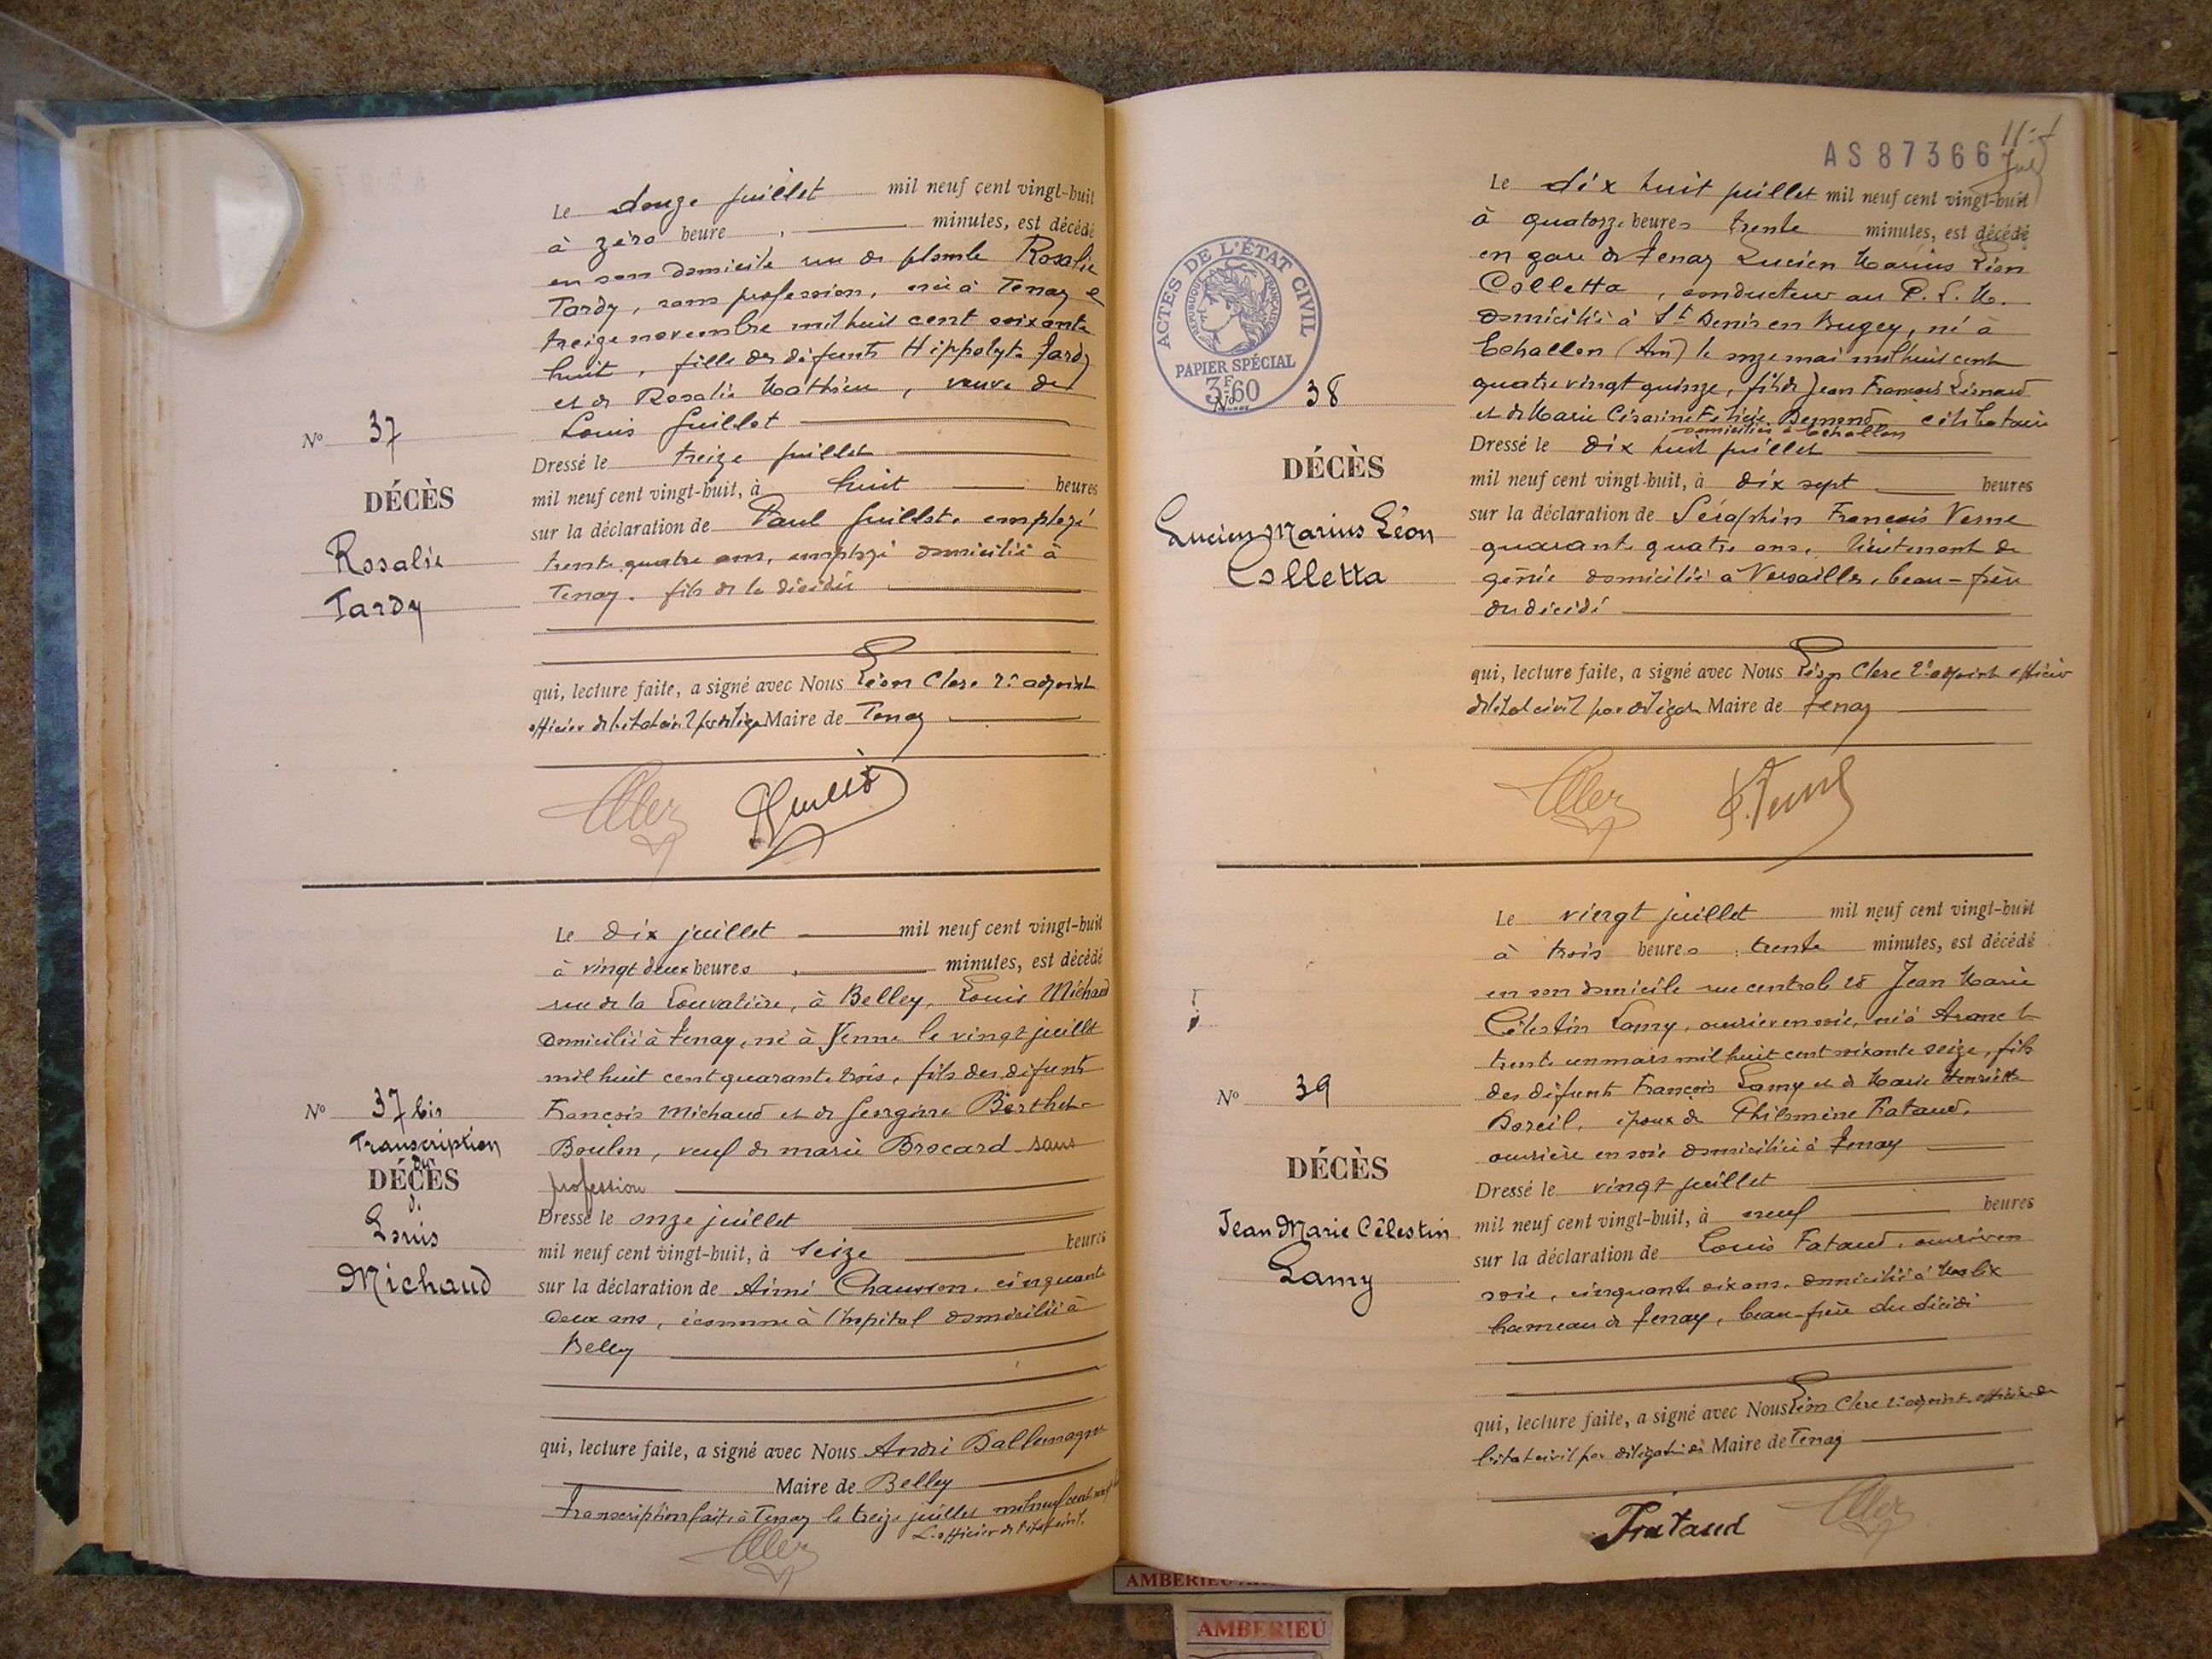 Le douze juillet mil neuf cent vingt-huit
à zéro heure, minutes, est décédé
en son domicile rue de plomb Rosalie
Tardy, sans profession, née à Tenay le
treize novembre mil huit cent soixante
huit, fille des défunts Hippolyte Tardy
et de Rosalie Mathieu, veuve de
Louis Juillet
Nº 37
DÉCÈS
Rosalie
Tardy
Dressé le treize juillet
mil neuf cent vingt-huit, à huit heures
sur la déclaration de Paul Juillet, employé
trente quatre ans, employé domicilié à
Tenay, fils de la décédée
qui, lecture faite, a signé avec Nous Léon Clerc 2e adjoint
officier de l'état civil par délég Maire de Tenay
Le dix juillet mil neuf cent vingt-huit
à vingt deux heures, minutes, est décédé
rue de la Louvatière, à Belley, Louis Michaud
domicilié à Tenay, né à Yenne le vingt juillet
mil huit cent quarante trois, fils des défunts
François Michaud et de Georgine Berthet-
Boulon, veuf de marie Brocard sans
profession
Nº 37 bis
Transcription
du
DÉCÈS
de
Louis
Michaud
Dressé le onze juillet
mil neuf cent vingt-huit, à seize heures
sur la déclaration de Aimé Chausson, cinquante
deux ans, économe à l'hopital domicilié à
Belley
qui, lecture faite, a signé avec Nous André Dallemagne
Maire de Belley
Transcription faite à Tenay le treize juillet mil neuf cent
L'officier de l'état civil.
AS87366
Juil
Le dix huit juillet mil neuf cent vingt-huit
à quatorze heures trente minutes, est décédé
en gare de Tenay Lucien Marius Léon
Colletta, conducteur au P. L. M.
domicilié à St Denis en Bugey, né à
Echallon (Ain) le onze mai mil huit cent
quatre vingt quinze, fils de Jean François Léonard
et de Marie Césarine Félicie célibataire
domiciliés à Echallon
ACTES DE L'ÉTAT CIVIL
RÉPUBLIQUE FRANÇAISE
PAPIER SPÉCIAL
3F.60
Nº 38
DÉCÈS
Lucien Marius Léon
Colletta
Dressé le dix huit juillet
mil neuf cent vingt-huit, à dix sept heures
sur la déclaration de Séraphin François Verne
quarante quatre ans, lieutenant de
génie domicilié à Versailles, beau-frère
du décédé
qui, lecture faite, a signé avec Nous Léon Clerc 2e adjoint officier
de l'état civil par délégat Maire de Tenay
Le vingt juillet mil neuf cent vingt-huit
à trois heures trente minutes, est décédé
en son domicile rue centrale 28 Jean Marie
Célestin Lamy, ouvrier en soie, né à Aranc le
trente un mars mil huit cent soixante seize, fils
des défunts François Lamy et de Marie Henriette
Boreil, époux de Philomène Frataud,
ouvrière en soie domiciliée à Tenay
Nº 39
DÉCÈS
Jean Marie Célestin
Lamy
Dressé le vingt juillet
mil neuf cent vingt-huit, à neuf heures
sur la déclaration de Louis Fataud, ouvrier en
soie, cinquante six ans, domicilié à
hameau de Tenay, beau-frère du décédé
qui, lecture faite, a signé avec Nous Léon Clerc 2e adjoint officier de
l'état civil par délégation Maire de Tenay
Frataud
AMBERIEU
AMBERIEU